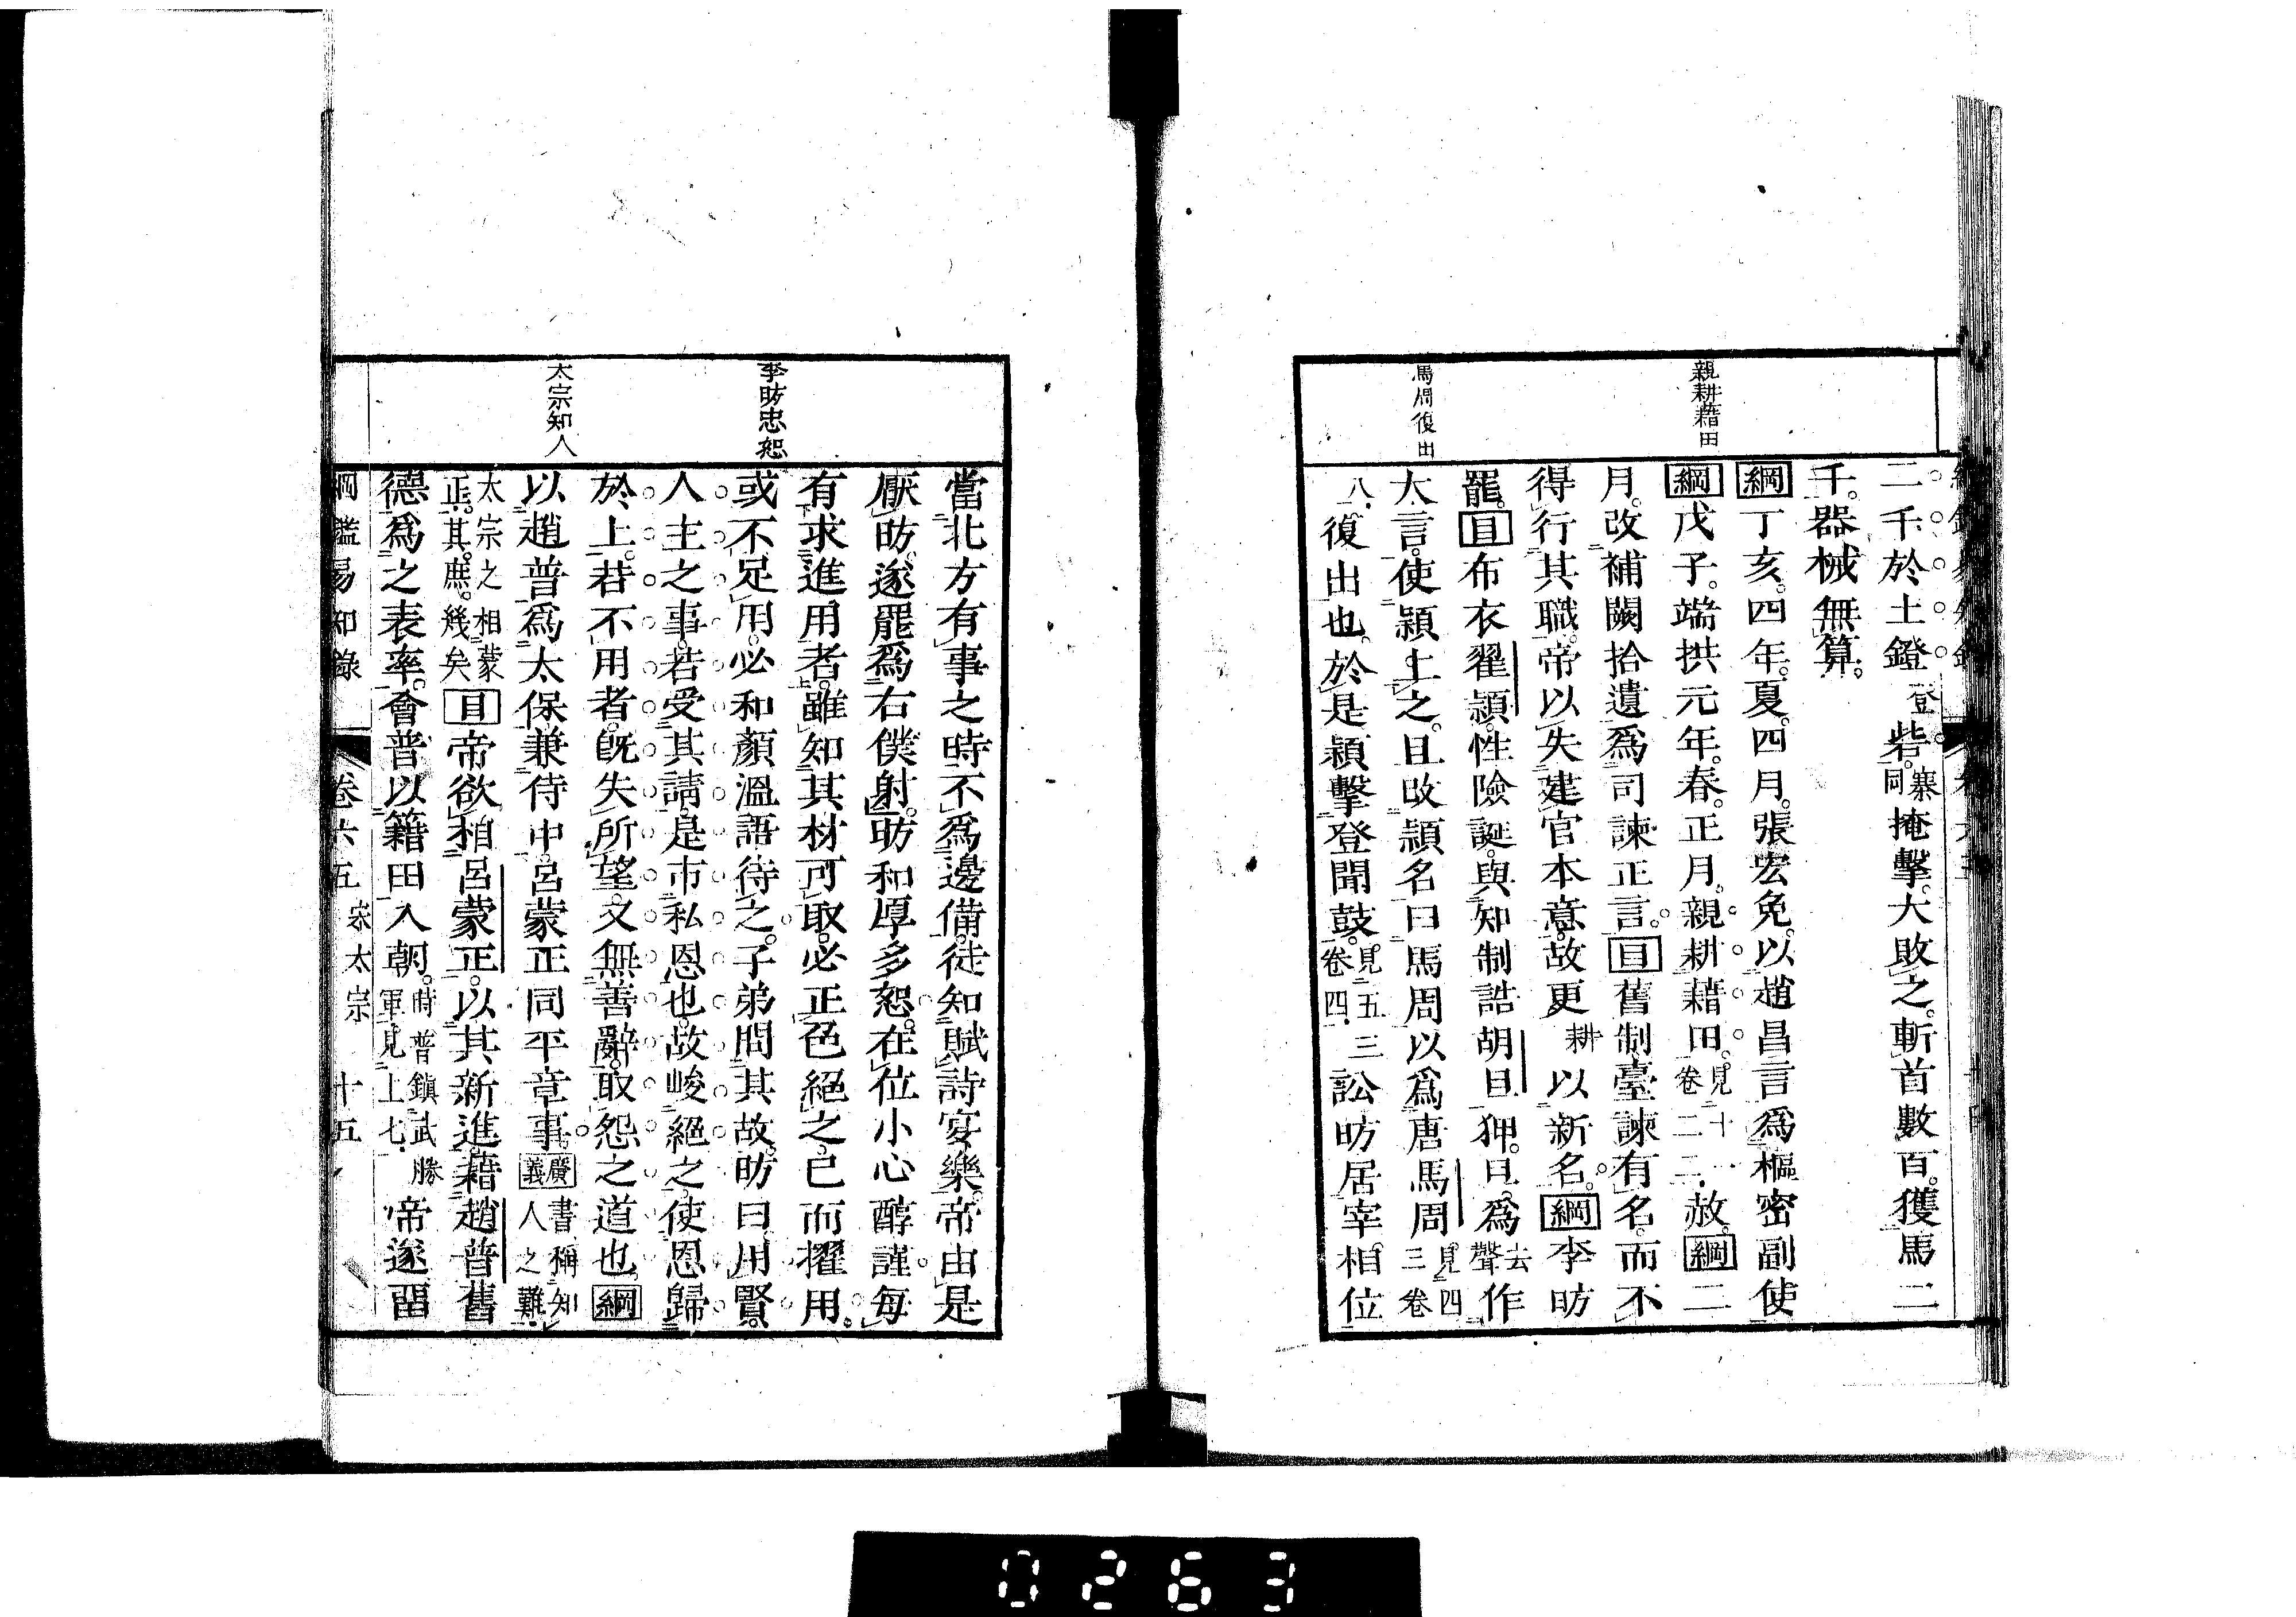 親耕藉田
馬周復出
二千於土鐙登砦寨同掩擊。大敗之。斬首數百。獲馬二
千。器械無算。
綱丁亥。四年。夏。四月。張宏免。以趙昌言爲樞密副使
綱戊子。端拱元年。春。正月。親耕藉田。見十一卷二二赦。綱二
月。改補闕拾遺爲司諫正言。目舊制臺諫有名。而不
得行其職。帝以失建官本意。故更耕以新名。綱李昉
罷。目布衣翟潁。性險誕。與知制誥胡旦狎。旦爲去聲作
大言。使潁上之。且改潁名曰馬周以爲唐馬周見四三卷
八復出也。於是潁擊登聞鼓。見五卷四三訟昉居宰相位
李昉忠恕
太宗知人
當北方有事之時不爲邊備。徒知賦詩宴樂。帝由是
厭昉。遂罷爲右僕射。昉和厚多恕。在位小心醇謹。每
有求進用者。雖知其材可取。必正色絕之。已而擢用。
或不足用。必和顏溫語待之。子弟問其故。昉曰。用賢。
人主之事。若受其請。是市私恩也。故峻絕之。使恩歸
於上。若不用者。旣失所望。又無善辭。取怨之道也。綱
以趙普爲太保兼侍中。呂蒙正同平章事。廣義書稱知人之難。
太宗之相蒙正。其庶幾矣目帝欲相呂蒙正。以其新進。藉趙普舊
德爲之表率。會普以籍田入朝。時普鎮武勝軍。見上七帝遂留
綱鑑易知錄 卷六五 宋太宗 十五
0263